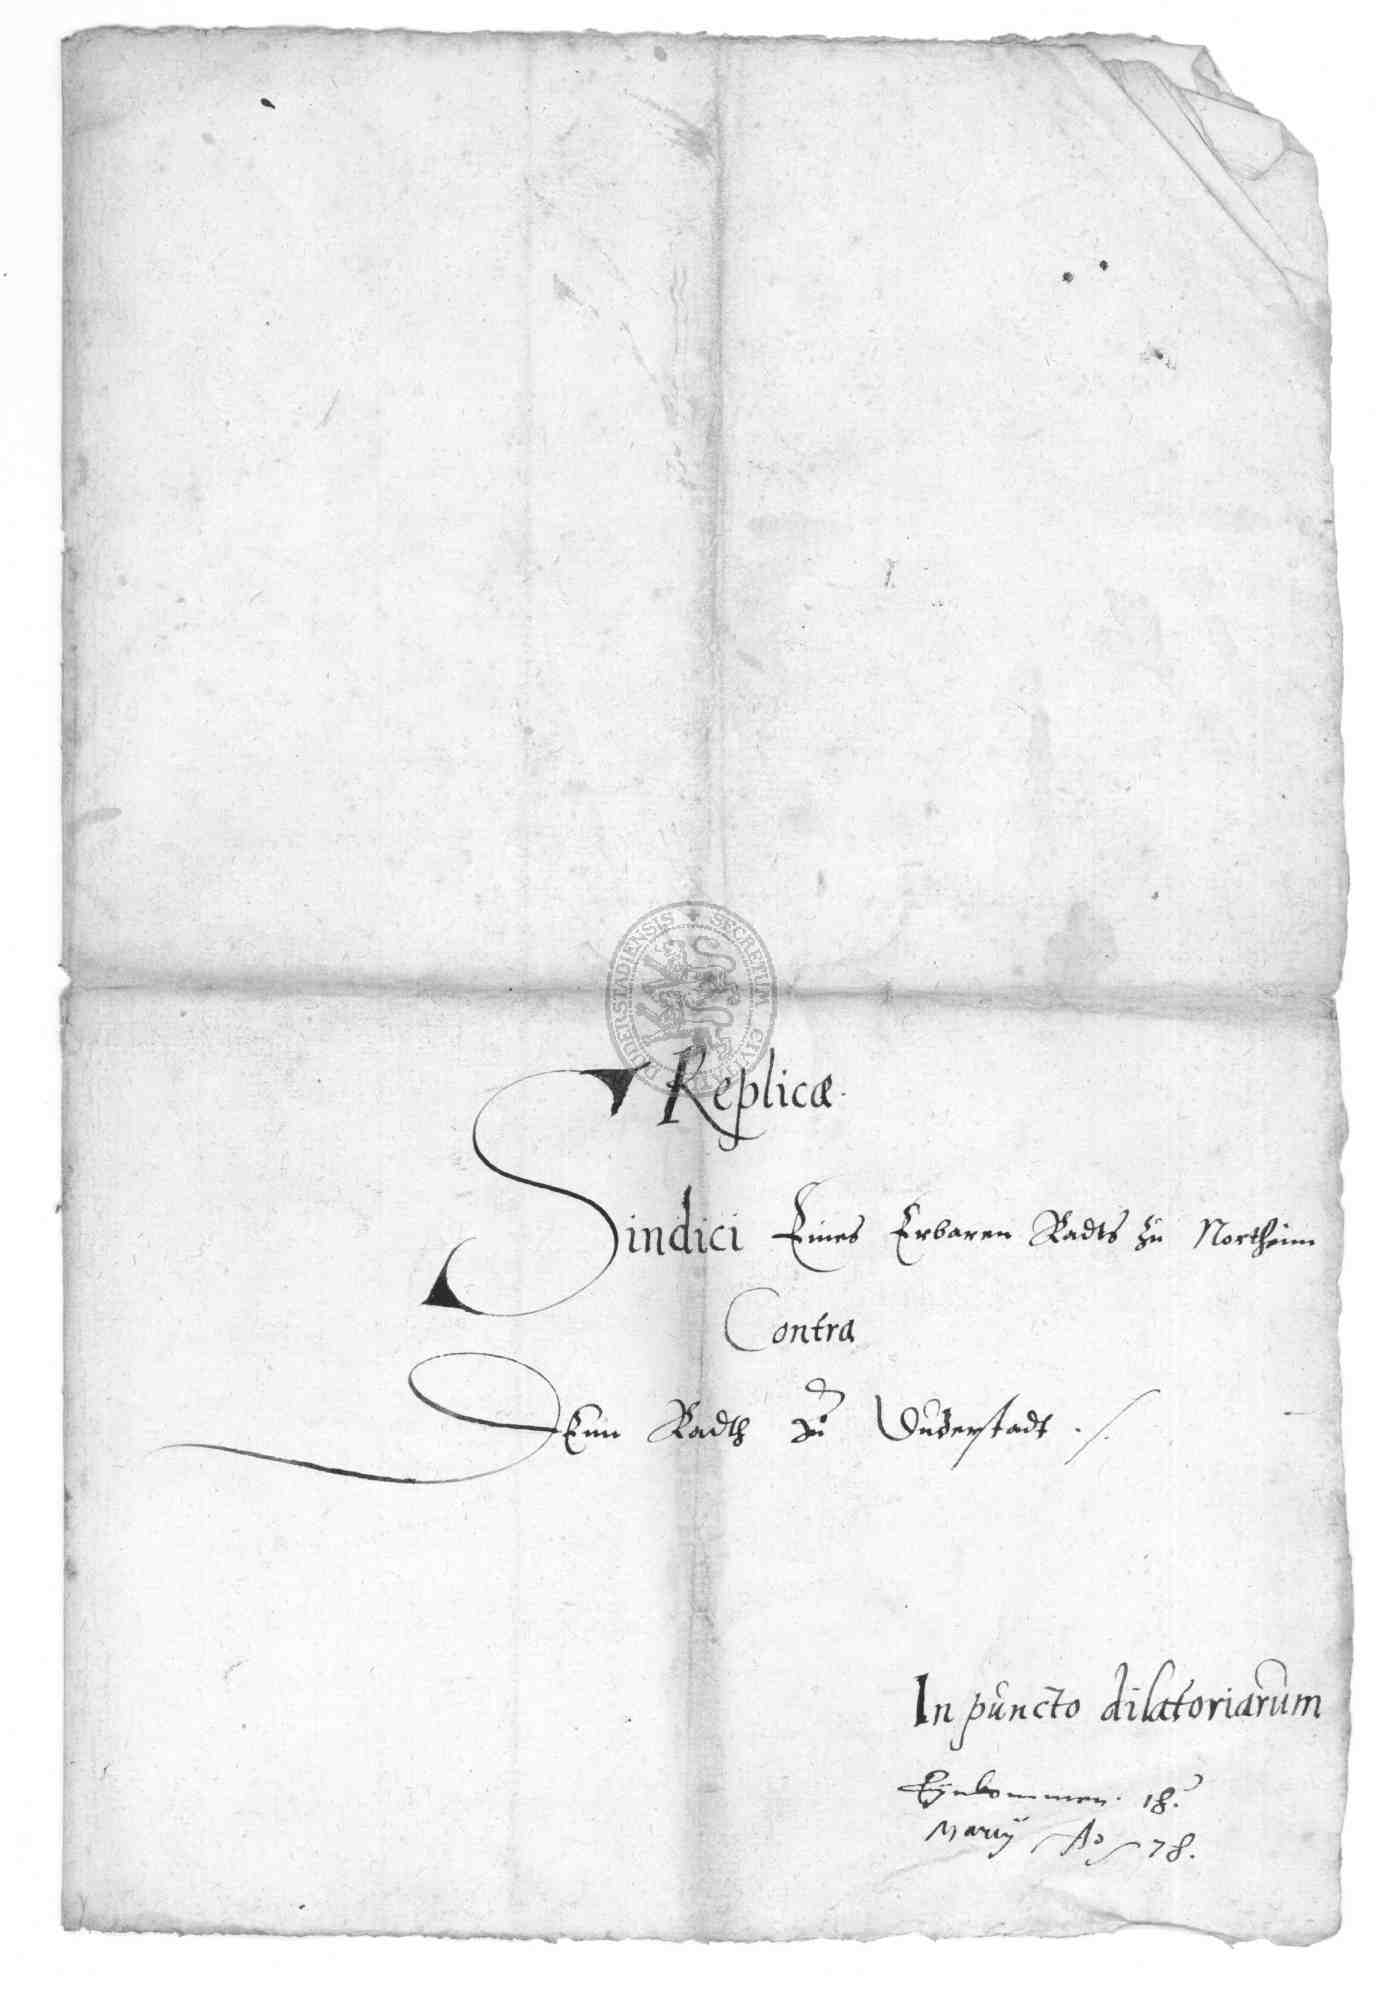 SECRETUM CIVITATIS DUDERSTADIENSIS
Replicæ.
Sindici Eines Erbaren Radts zu Northeim
Contra
Denn Radth zu Duderstadt ./.
In puncto dilatoriarum
Eynkommen. 18.
Marcij Ao 78.